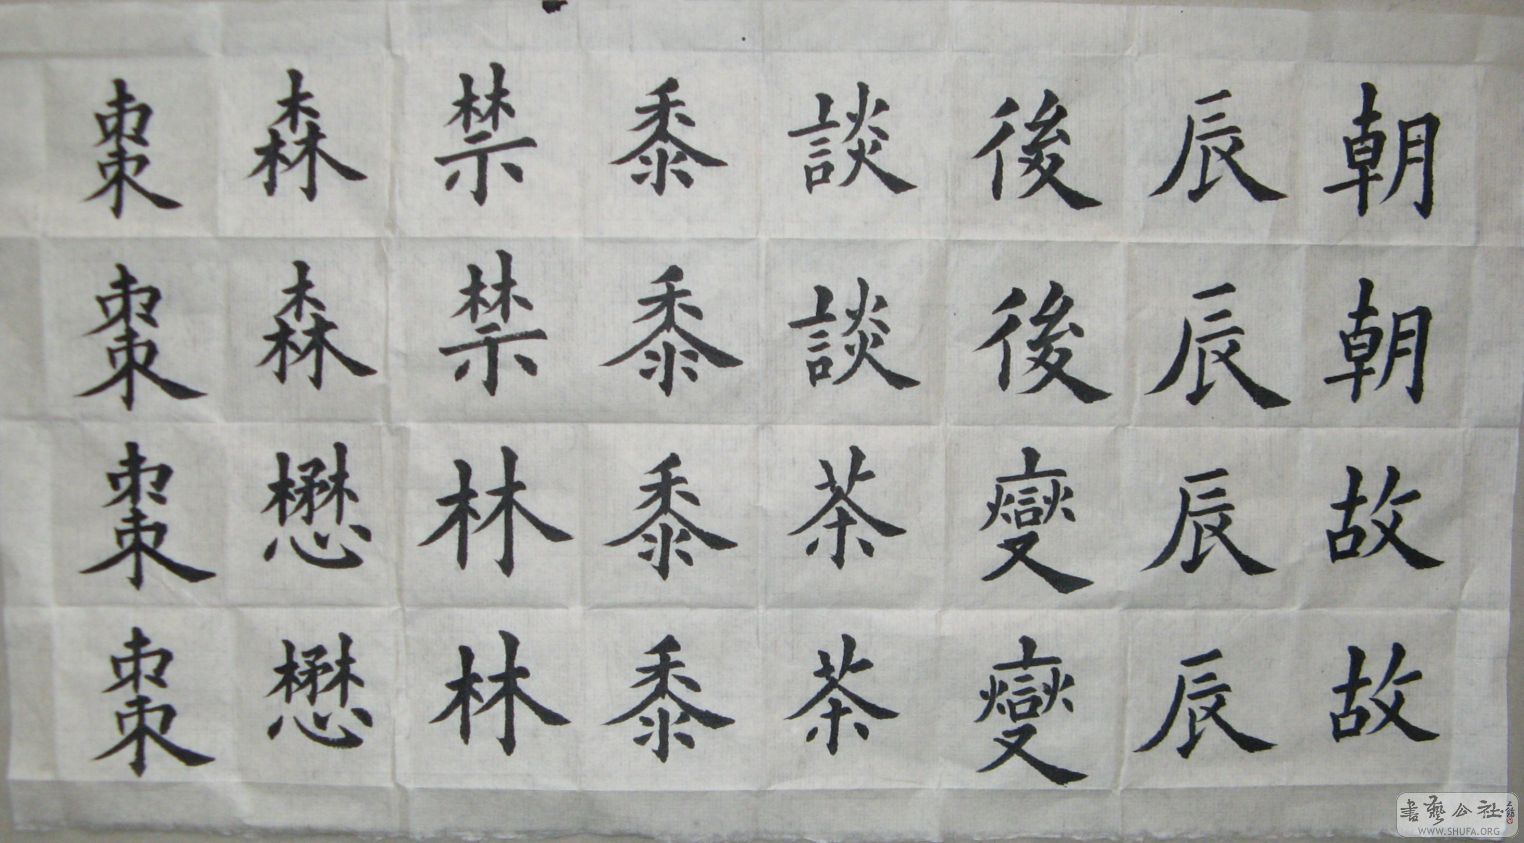 朝朝故故
辰辰辰辰
後後燮燮
談談茶茶
黍黍黍黍
禁禁林林
森森懋懋
棗棗棗棗
書藝公社
WWW.SHUFA.ORG